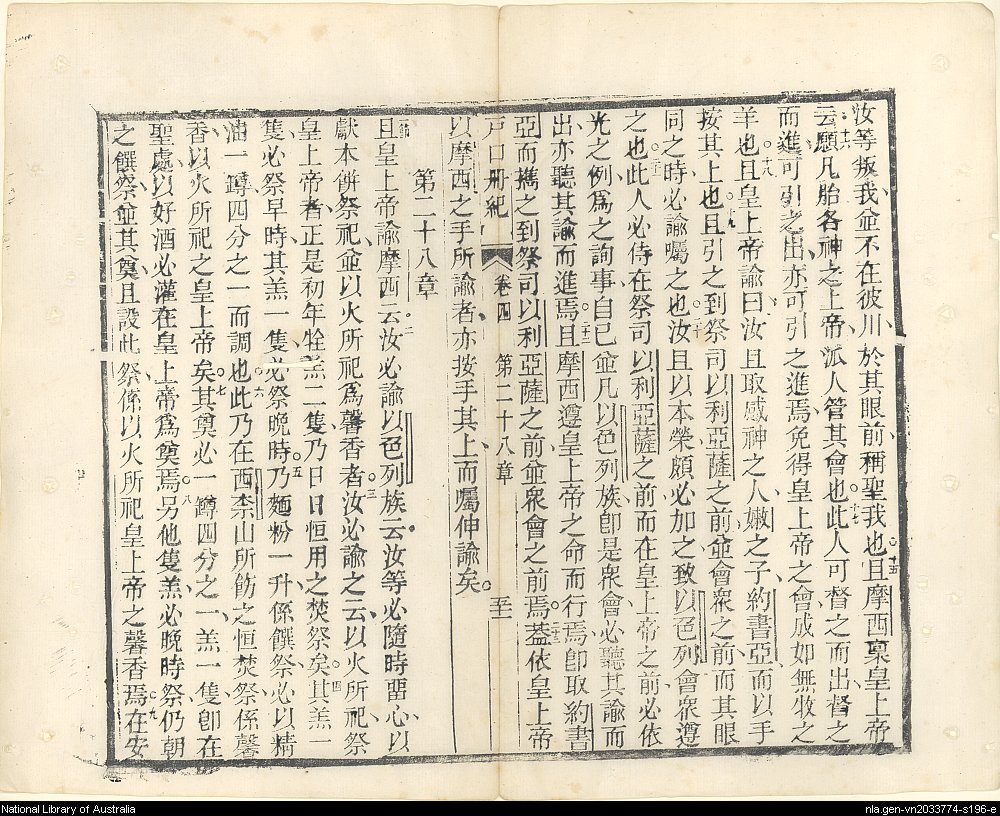 汝等叛我並不在彼川於其眼前稱聖我也○十五且摩西稟皇上帝
云○十六願凡胎各神之上帝派人管其會也○十七此人可督之而出督之
而進可引之出亦可引之進焉免得皇上帝之會成如無牧之
羊也○十八且皇上帝諭曰汝且取感神之人嫩之子約書亞而以手
按其上也○十九且引之到祭司以利亞薩之前並會衆之前而其眼
同之時必諭囑之也○二十汝且以本榮頗必加之致以色列會衆遵
之也○二一此人必侍在祭司以利亞薩之前而在皇上帝之前必依
光之例爲之詢事自己並凡以色列族卽是衆會必聽其諭而
出亦聽其諭而進焉○二二且摩西遵皇上帝之命而行焉卽取約書
亞而攜之到祭司以利亞薩之前並衆會之前焉○二三葢依皇上帝
戶口冊紀 卷四 第二十八章
以摩西之手所諭者亦按手其上而囑伸諭矣○
第二十八章
一節且皇上帝諭摩西云○二汝必諭以色列族云汝等必隨時留心以
獻本餅祭祀並以火所祀爲馨香者○三汝必諭之云以火所祀祭
皇上帝者正是初年牷羔二隻乃日日恒用之焚祭矣○四其羔一
隻必祭早時其羔一隻必祭晚時○五乃麵粉一升係饌祭必以精
油一罇四分之一而調也○六此乃在西柰山所飭之恒焚祭係馨
香以火所祀之皇上帝矣○七其奠必一罇四分之一羔一隻卽在
聖處以好酒必灌在皇上帝爲奠焉○八另他隻羔必晚時祭仍朝
之饌祭並其奠且設此祭係以火所祀皇上帝之馨香焉○九在安
National Library of Australia
nla.gen-vn2033774-s196-e